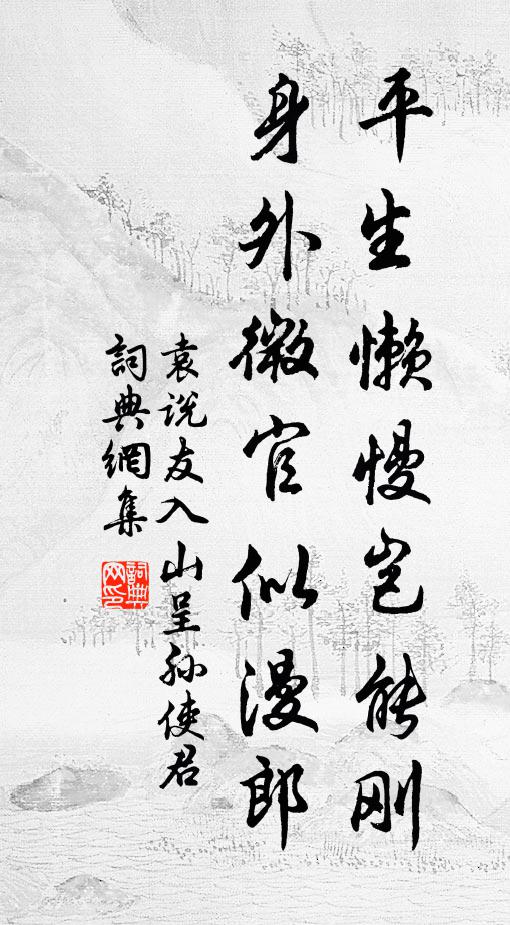 平生懒慢岂能刚
身外微官似漫郎
袁说友入山呈孙使君
詞典網集
詞典网印